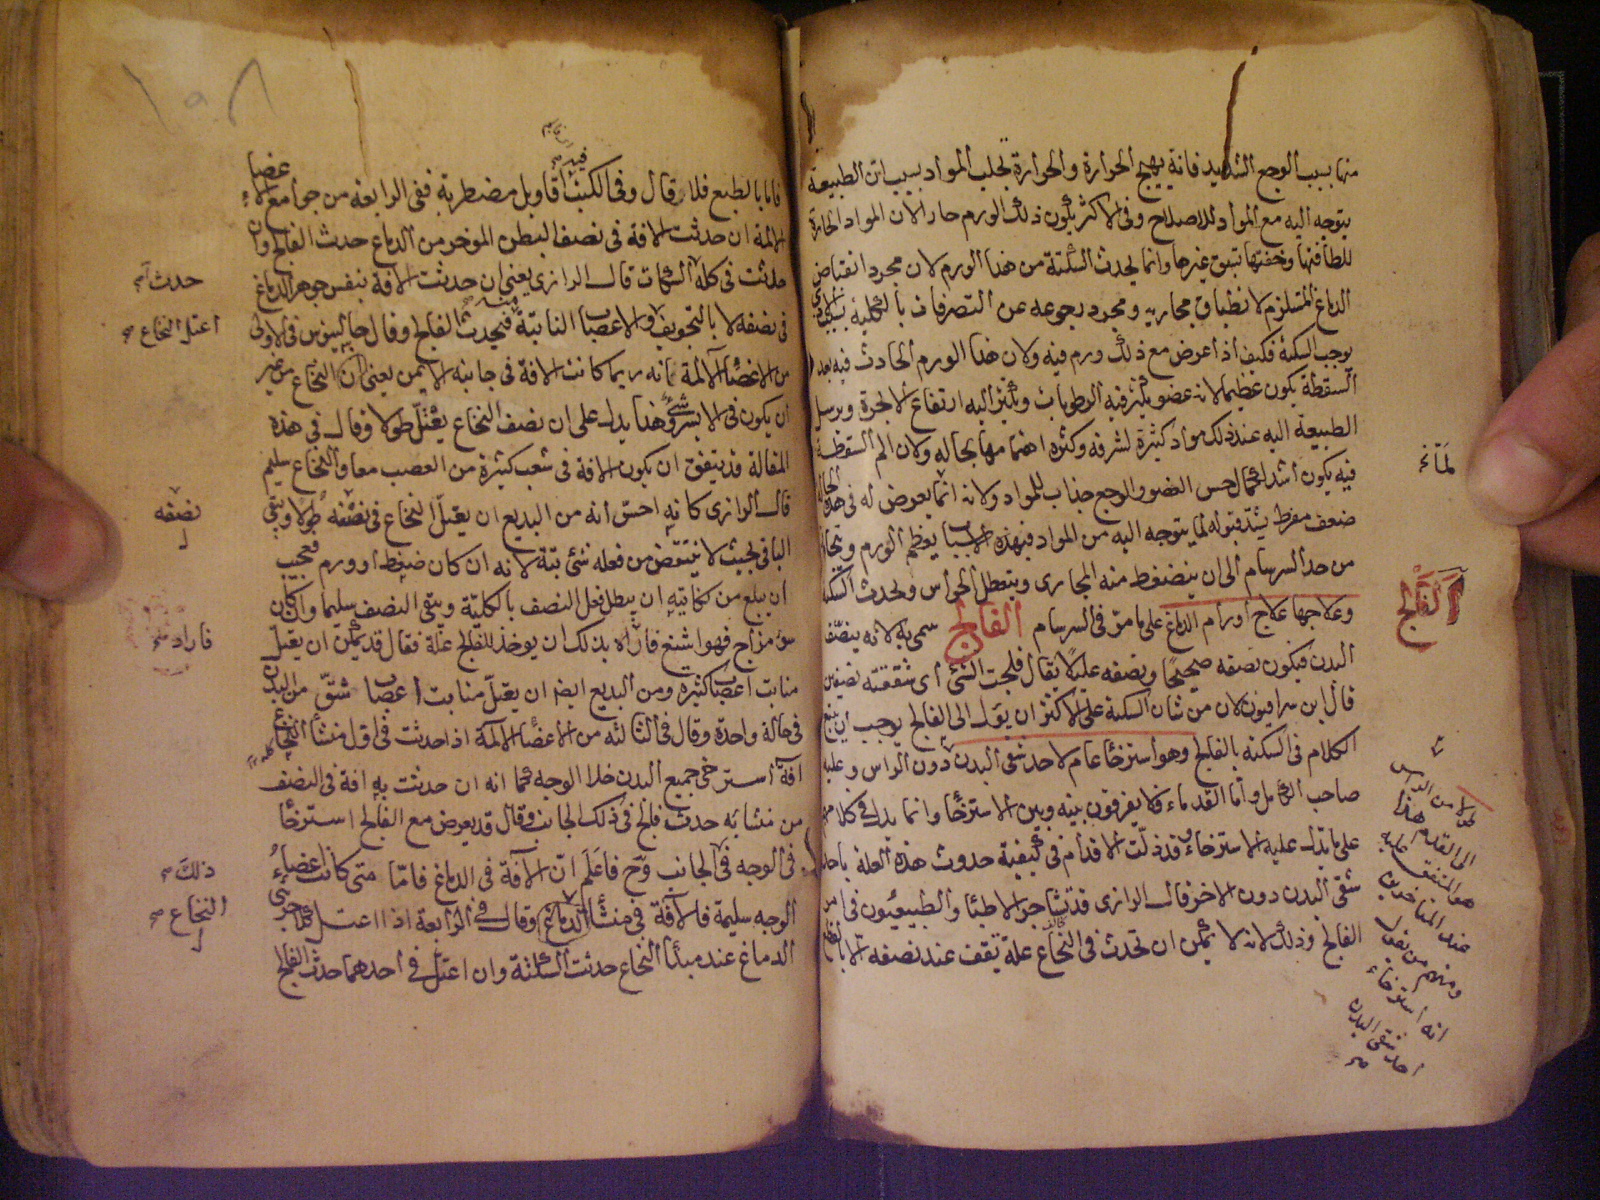 منها بسبب الوجع الشديد فانه يهيج الحرارة والحرارة تجلب المواد بسبب ان الطبيعة
يتوجه اليه مع المواد للاصلاح وفى الاكثر يكون ذلك الورم حارا لان المواد الحارة
للطافتها وخفتها تسبق غيرها وانما يحدث السكتة من هذا الورم لان مجرد انقباض
الدماغ المستلزم لانطباق مجاريه ومجرد رجوعه عن التصرفات بالكلية
يوجب السكتة فكيف اذا عرض مع ذلك ورم فيه ولان هذا الورم الحادث فيه بعد
السقطة يكون عظيما لانه عضو يكثر فيه الرطوبات ويكثر اليه ارتفاع الابخرة ويرسل
الطبيعة اليه عند ذلك مواد كثيرة لشرفه وكثرة اهتمامها بحاله ولان الم السقطة
فيه يكون اشد لكمال حس العضو والوجع جذاب للمواد ولانه انما يعرض له فى هذه الحال
ضعف مفرط يشتد قبوله لما يتوجه اليه من المواد فبهذه الاسباب يعظم الورم
من حد السرسام الى ان ينضغط منه المجارى ويتعطل الحواس ويحدث السكتة
وعلاجها علاج اورام الدماغ على ما مر فى السرسام الفالج سمى به لانه ينصف
البدن فيكون نصفه صحيحا ونصفه عليلا يقال فلجت الشئ اى شققته نصفين
قال ابن سرافيون لان من شان السكتة على الاكثر ان يؤل الى الفالج يوجب ان نتبع
الكلام فى السكتة بالفالج وهو استرخاء عام لاحد شقى البدن دون الراس وعليه
صاحب الكامل واما القدماء فلا يفرقون بينه وبين الاسترخاء وانما يدل فى كلامهم
على ما يدل عليه الاسترخاء وقد زلت الاقدام فى كيفية حدوث هذه العلة باحد
شقى البدن دون الاخر قال الرازى قد تشاجر الاطباء والطبيعيون فى امر
الفالج وذلك لانه لا يمكن ان تحدث فى النخاع علة تقف عند نصفه الا بالقطع
لمآء
الفالج
من الراس
الى القدم هذا
هو المتفق عليه
عند المتاخرين
ومنهم من يقول
انه استرخاء
احد شقى البدن
فاما بالطبع فلا وقال وفى الكتب اقاويل مضطربة ففى الرابعة من جوامع الاعضا
الالمة ان حدثت الافة فى نصف البطن الموخر من الدماغ حدث الفالج وان
حدثت فى كله السكات قال الرازى يعنى ان حدثت الافة بنفس جوهر الدماغ
فى نصفه لا بالتجويف والاعصاب النابتة منه فيحدث الفالج وقال جالينوس فى الاولى
من الاعضاء الالمة انه ربما كانت الافة فى جانبه الايمن يعنى ان النخاع من غير
ان يكون فى الايسر شئ وهذا يدل على ان نصف النخاع يعتل طولا وقال فى هذه
المقالة قد يتفق ان يكون الافة فى شعب كثيرة من العصب معا والنخاع سليم
قال الرازى كانه احس انه من البديع ان يعتل النخاع فى نصفه طولا ويبقى
الباقى بحيث لا ينتقص من فعله شئ بتة لانه ان كان ضغط او ورم فيجب
ان يبلغ من نكايته ان يبطل فعل النصف بالكلية ويبقى النصف سليما وان كان
سوء مزاج فهو اشنع فاراد بذلك ان يوخذ للفالج علة فقال قد يمكن ان يعتل
منابت اعصاب كثيرة ومن البديع ايضا ان يعتل منابت اعصاب شق من البدن
فى حالة واحدة وقال فى الثالثة من الاعضاء الالمة اذا حدثت فى اول منشأ النخاع
افة استرخى جميع البدن خلا الوجه كما انه ان حدثت به افة فى النصف
من منشائه حدث فالج فى ذلك الجانب وقال قد يعرض مع الفالج استرخاء
فى الوجه فى الجانب وح فاعلم ان الآفة فى الدماغ فاما متى كانت اعضاء
الوجه سليمة فالآفة فى منشأ الدماغ وقال فى الرابعة اذا اعتل كلا جزئى
الدماغ عند مبدأ النخاع حدثت السكتة وان اعتل فى احدهما حدث الفالج
حدث
اعتل النخاع
نصفه
فاراد
ذلك
النخاع
١٥٨